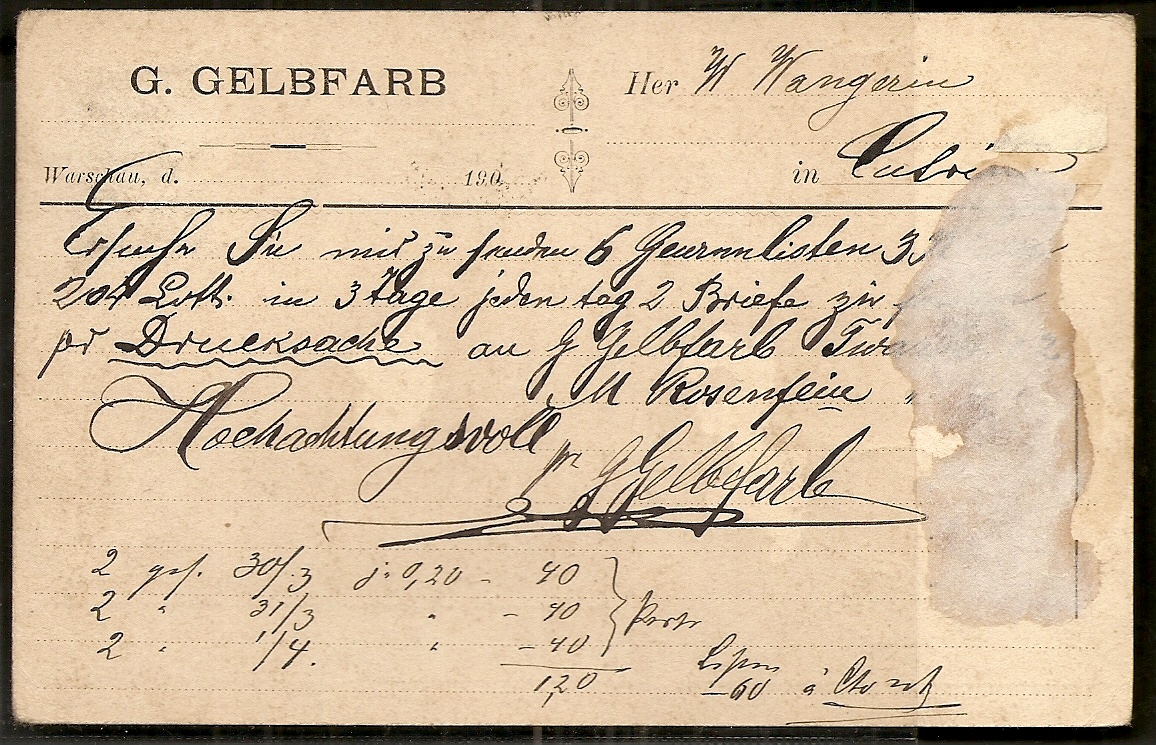 G. GELBFARB
Her W Wangerin
Warschau, d. 190
in
Ersuche Sie mir zu senden 6 Gewinnlisten
204 Lott. in 3 Tage jeden tag 2 Briefe zu
pr Drucksache an G Gelbfarb
M Rosenfein
Hochachtungsvoll
pr G Gelbfarb
2 ges. 30/3 à 0,20 - 40
2 " 31/3 " - 40 Porto
2 " 1/4. " - 40
1,20
60 à